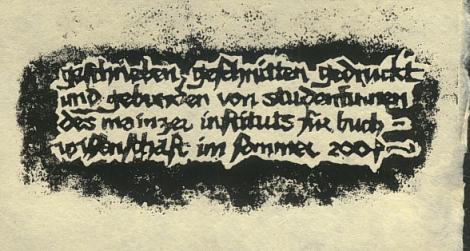 geschrieben, geschnitten gedruckt
und gebunden von studentinnen
des mainzer instituts für buch-
wissenschaft im sommer